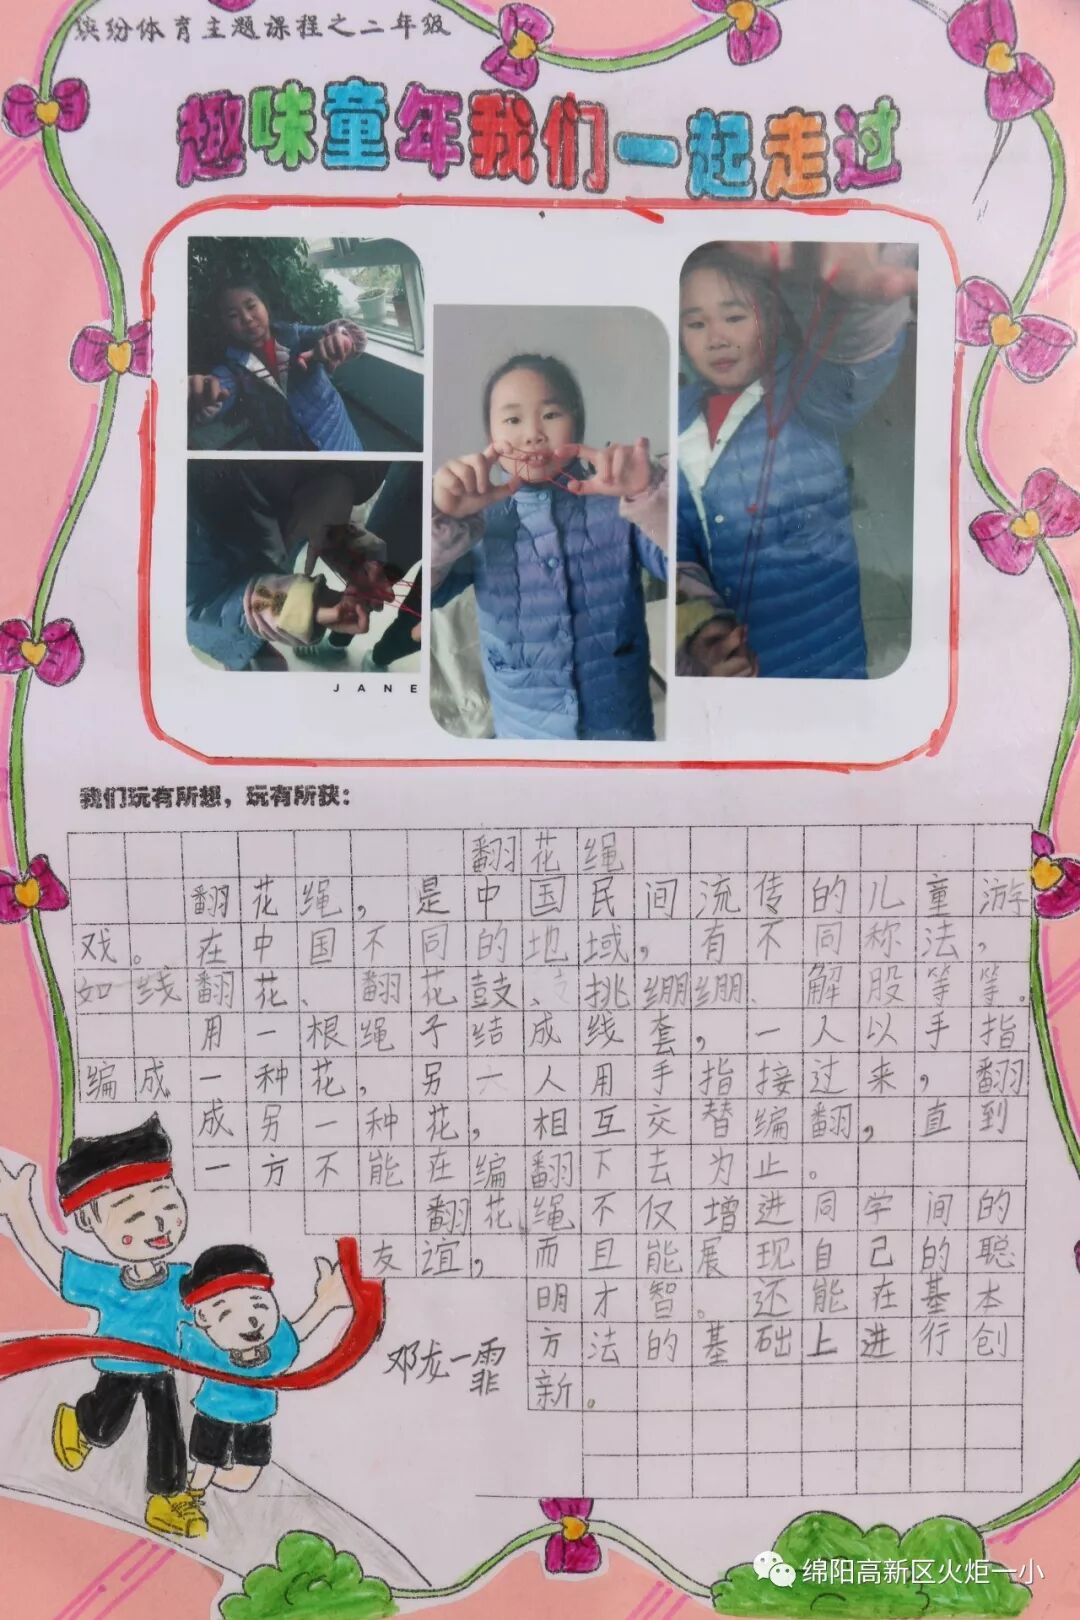 缤纷体育主题课程之二年级
趣味童年我们一起走过
JANE
我们玩有所想，玩有所获：
翻花绳
翻花绳，是中国民间流传的儿童游
戏。在中国不同的地域，有不同称法，
如线翻花、翻花鼓、挑绷绷、解股等等。
用一根绳子结成线套，一人以手指
编成一种花，另一人用手指接过来，翻
成另一种花，相互交替编翻，直到
一方不能在编翻下去为止。
翻花绳不仅增进同学间的
友谊，而且能展现自己的聪
明才智。还能在基本
方法的基础上进行创
新。
邓龙一霏
绵阳高新区火炬一小